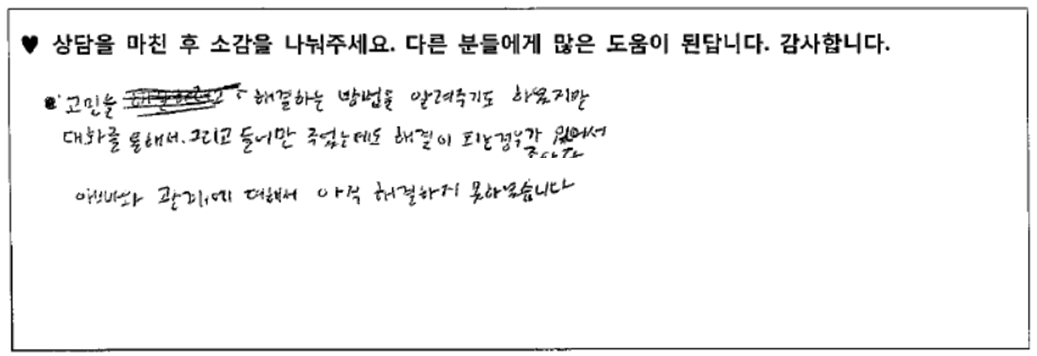 ♥ 상담을 마친 후 소감을 나눠주세요. 다른 분들에게 많은 도움이 된답니다. 감사합니다.
고민을 해결하는 방법을 알려주기도 하였지만
대화를 통해서. 그리고 들어만 주었는데도 해결이 되는 경우가 있어서
좋았다
아빠와 관계에 대해서 아직 해결하지 못하였습니다